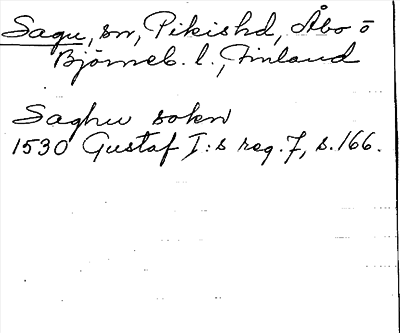 Sagu, sn, Pikishd, Åbo o
Björneb. l., Finland
Saghu sokn
1530 Gustaf I:s reg. 7, s. 166.